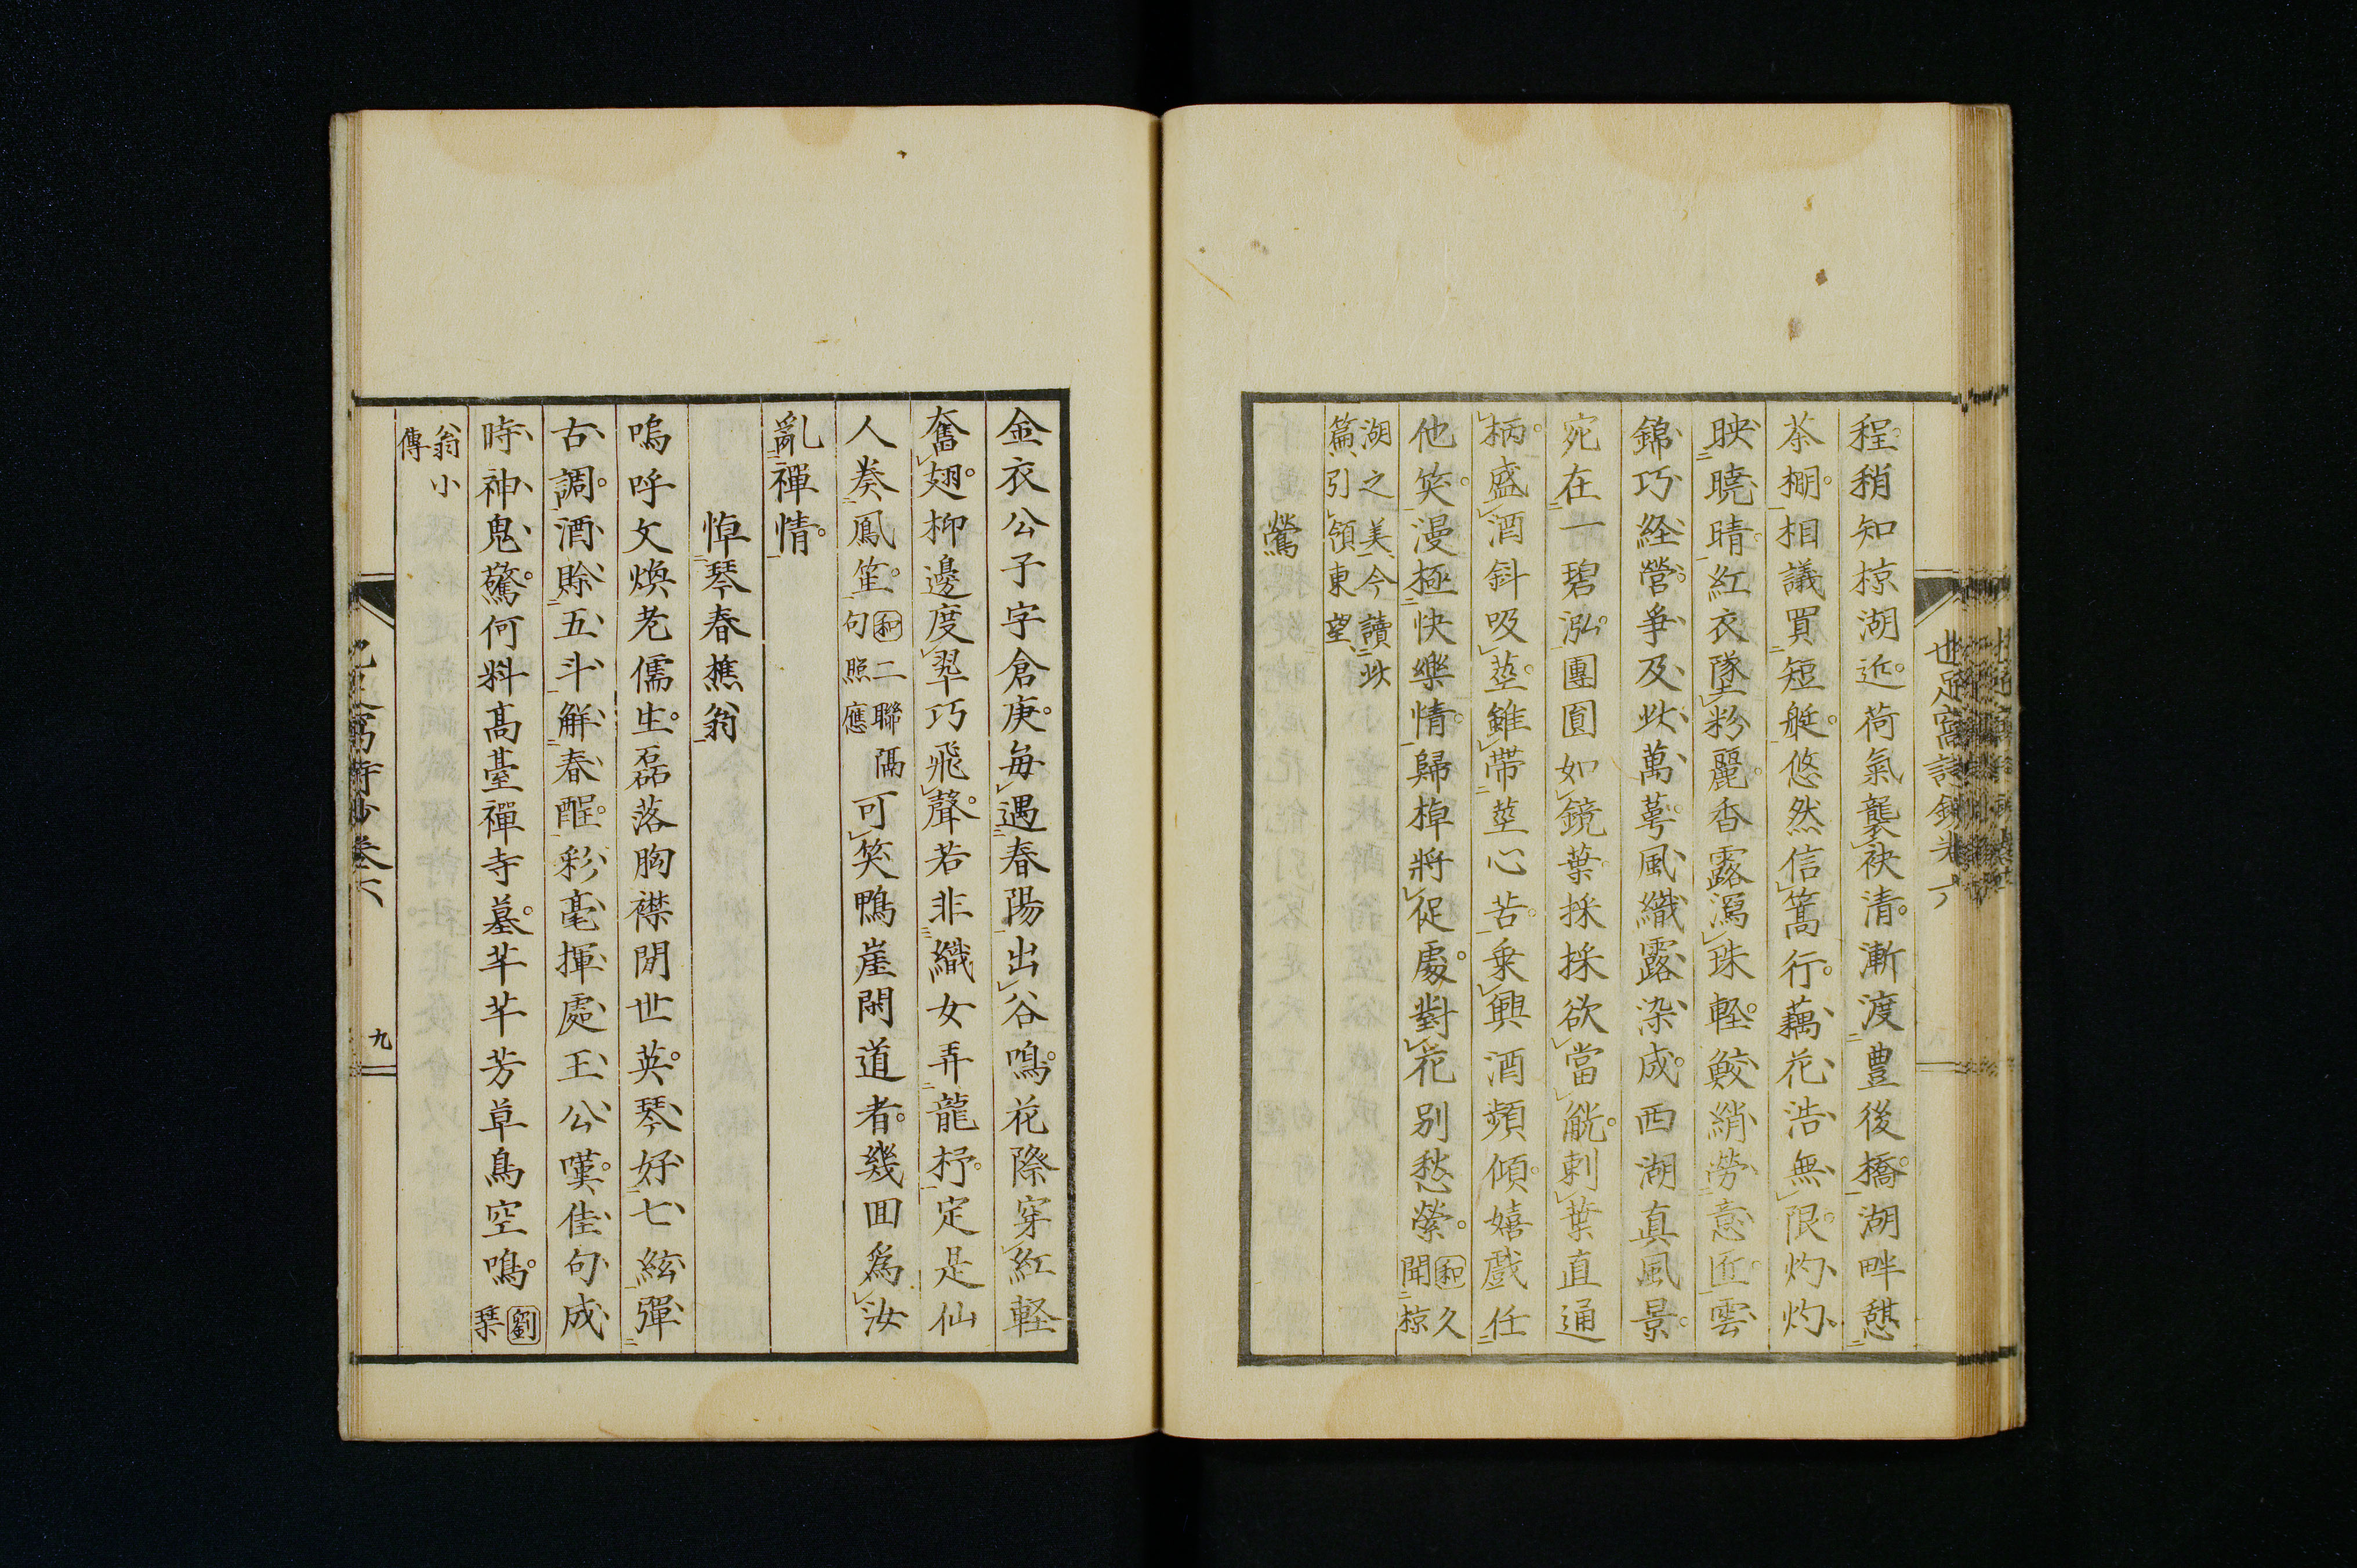 程稍知椋湖近荷氣襲袂清漸渡豊後橋湖畔憩
茶棚相議買短艇悠然信篙行藕花浩無限灼灼
映曉晴紅衣墜粉麗香露瀉珠軽鮫綃勞意匠雲
錦巧経營爭及此萬萼風織露染成西湖真風景
宛在一碧泓團圓如鏡葉採採欲當觥刺葉直通
柄盛酒斜吸莖雖帯莖心苦乗興酒頻傾嬉戲任
他笑漫極快樂情歸棹將促處對花別愁縈 和久聞椋
湖之美今讀此篇引領東望
鶯
金衣公子字倉庚毎遇春陽出谷鳴花際穿紅軽
奮翅柳邊度翠巧飛聲若非織女弄龍杼定是仙
人奏鳳笙 和二聯隔句照應 可笑鴨崖閑道者幾囬爲汝
亂禪情
悼琴春樵翁
嗚呼文煥老儒生磊落胸襟閒世英琴好七絃彈
古調酒賒五斗解春酲彩毫揮處王公嘆佳句成
時神鬼驚何料高臺禪寺墓芊芊芳草鳥空鳴 劉琹
翁小傳
九